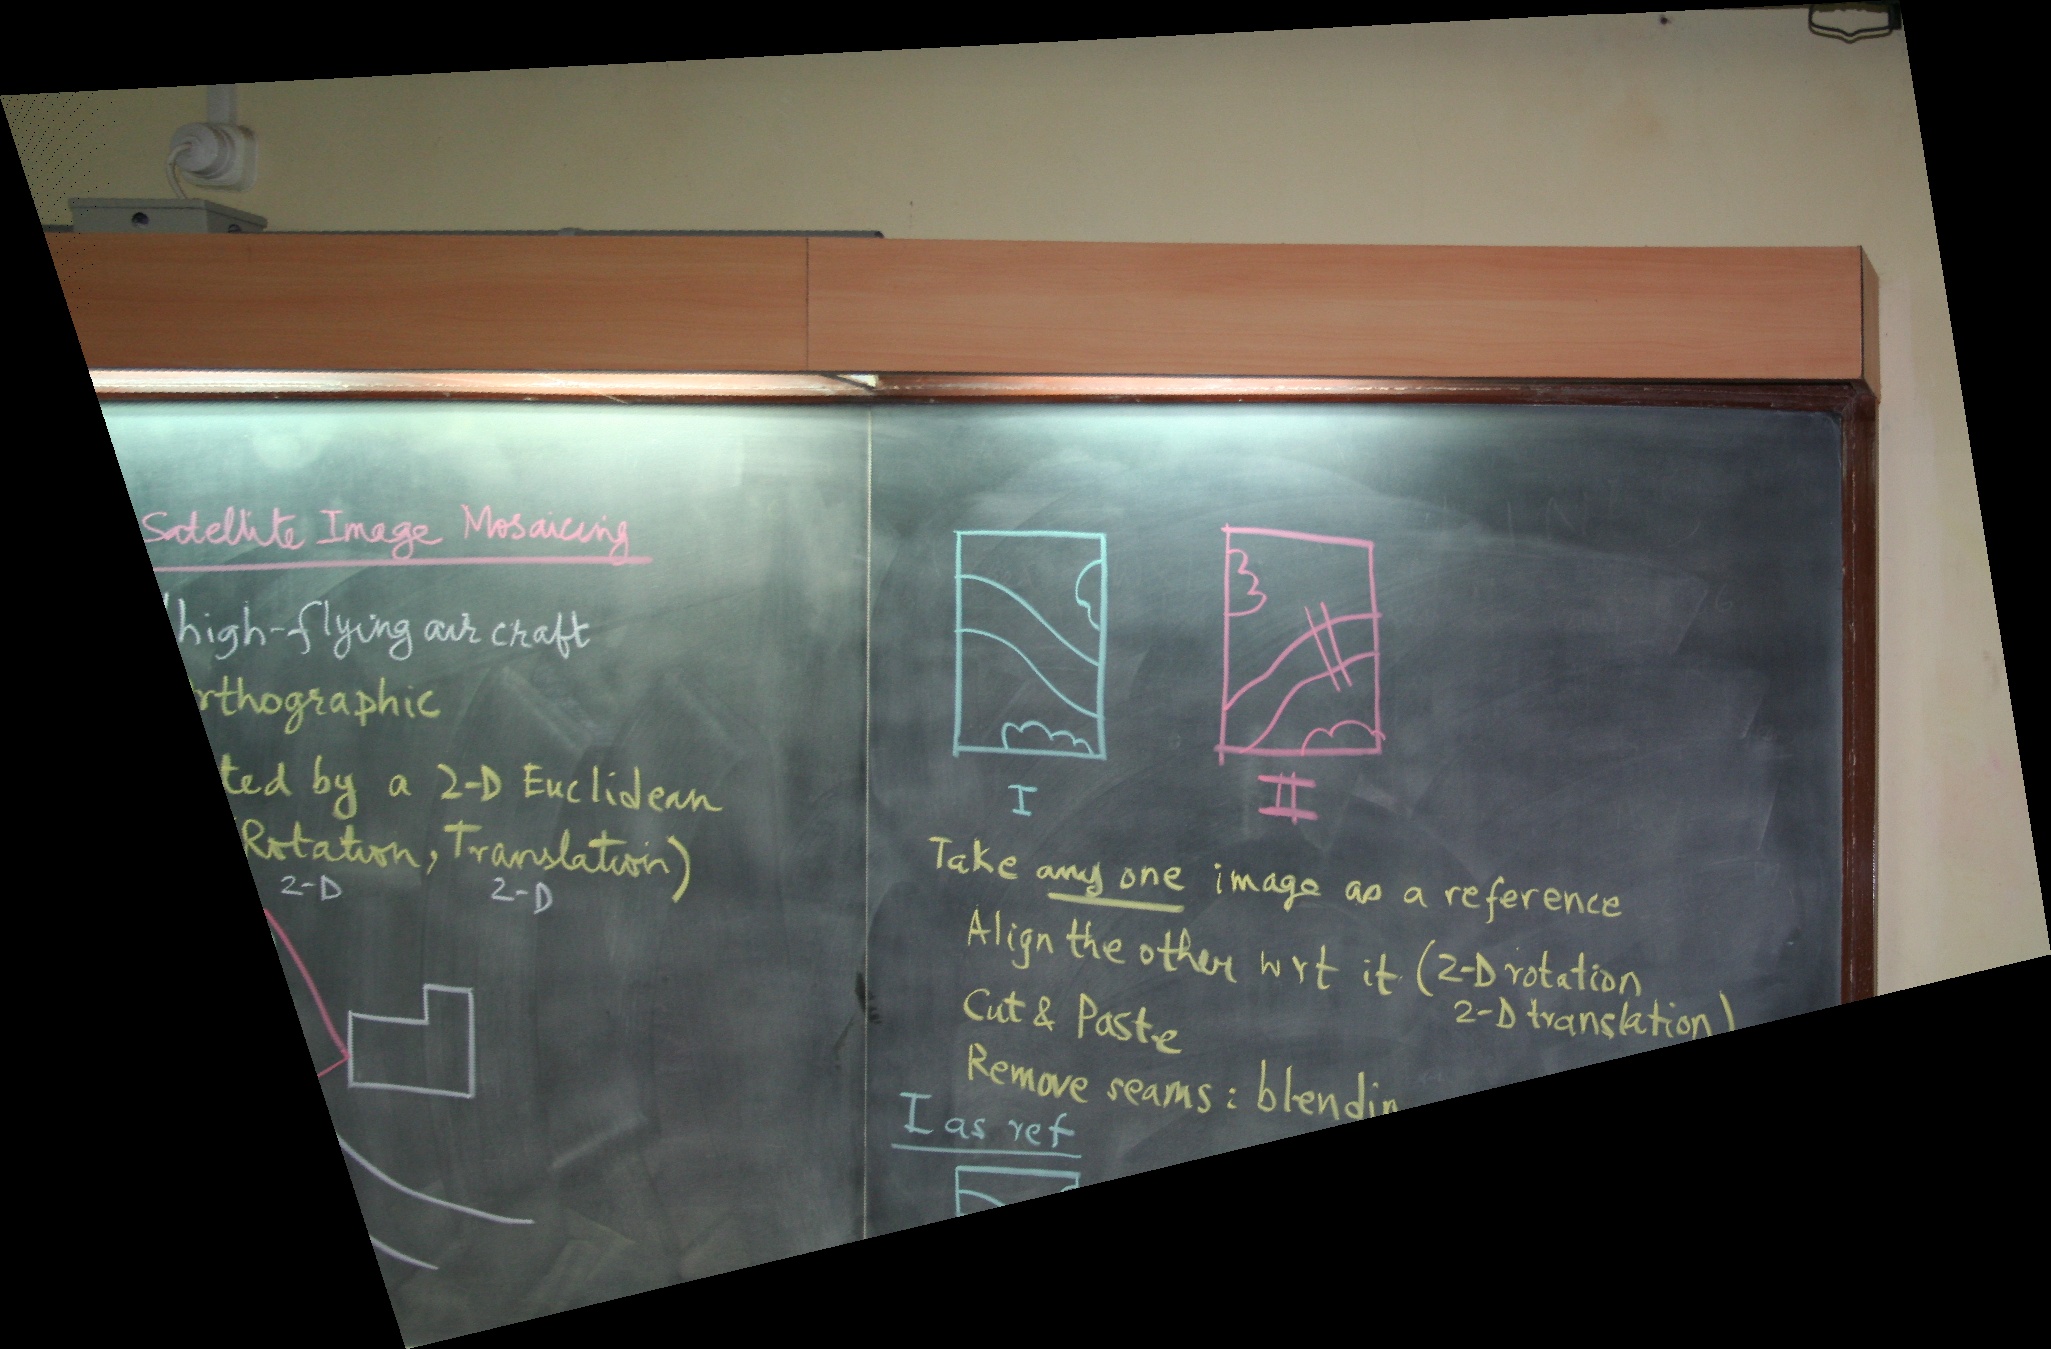 Satellite Image Mosaicing
high-flying air craft
rthographic
ted by a 2-D Euclidean
Rotation, Translation)
2-D 2-D
I II
Take any one image as a reference
Align the other wrt it (2-D rotation
2-D translation)
Cut & Paste
Remove seams: blendin
I as ref